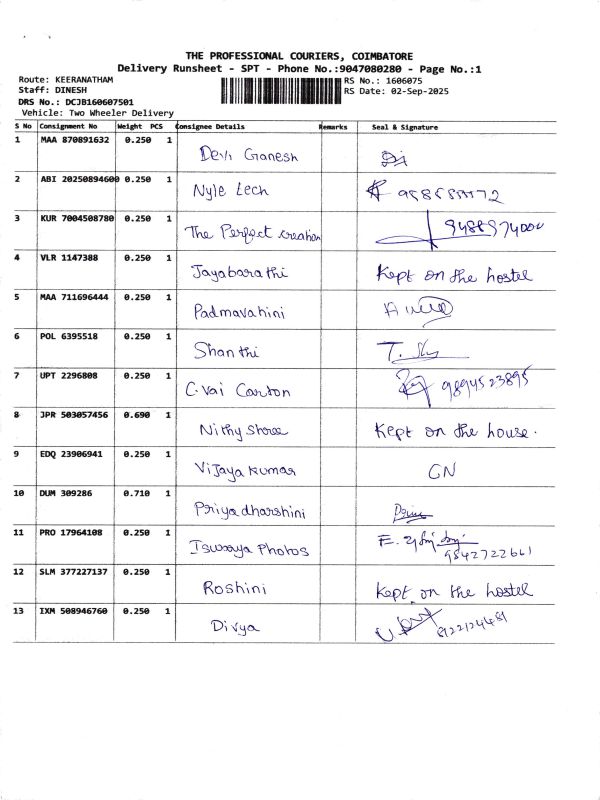 THE PROFESSIONAL COURIERS, COIMBATORE
Delivery Runsheet - SPT - Phone No.:9047080280 - Page No.:1
Route: KEERANATHAM RS No.: 1606075
Staff: DINESH RS Date: 02-Sep-2025
DRS No.: DCJB160607501
Vehicle: Two Wheeler Delivery
S No Consignment No Weight PCS Consignee Details Remarks Seal & Signature
1 MAA 870891632 0.250 1 Devi Ganesh
2 ABI 20250894600 0.250 1 Nyle Tech
3 KUR 7004508780 0.250 1 The Perfect creation
4 VLR 1147388 0.250 1 Jayabarathi Kept on the hostel
5 MAA 711696444 0.250 1 Padmavahini
6 POL 6395518 0.250 1 Shanthi
7 UPT 2296808 0.250 1 C.vai Carton 9894523895
8 JPR 503057456 0.690 1 Nithy Shree Kept on the house.
9 EDQ 23906941 0.250 1 Vijaya Kumar GN
10 DUM 309286 0.710 1 Priyadharshini
11 PRO 17964108 0.250 1 Iswarya Photos 9842722661
12 SLM 377227137 0.250 1 Roshini Kept on the hostel
13 IXM 508946760 0.250 1 Divya 8122124481